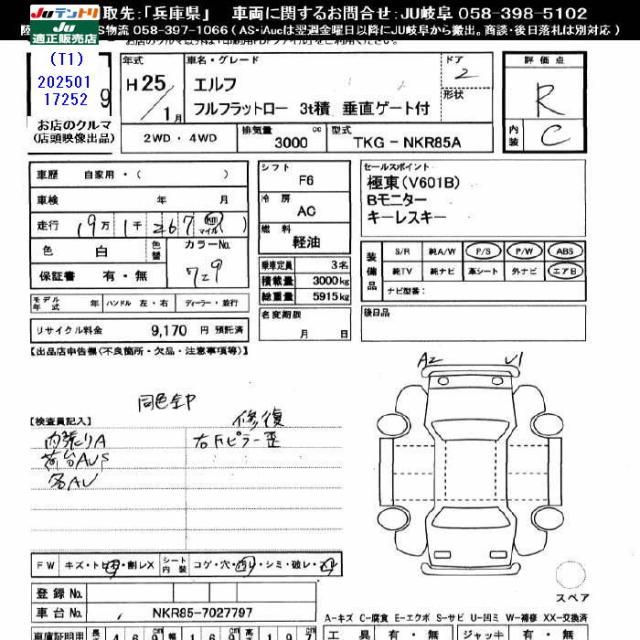 JUテントリ
JU適正販売店
取先:「兵庫県」 車両に関するお問合せ:JU岐阜 058-398-5102
S物流 058-397-1066 (AS-iAucは翌週金曜日以降にJU岐阜から搬出。商談・後日落札は別対応)
(T1)
202501
17252
9
お店のクルマ
(店頭映像出品)
年式
H25/1月
車名・グレード
エルフ
フルフラットロー 3t積 垂直ゲート付
ドア
2
形状
評価点
R
内装
C
2WD・4WD
排気量
3000 cc
型式
TKG-NKR85A
車歴 自家用・( )
車検 年 月
走行 19万1千267 km マイル ( )
色 白
色替
カラーNo.
729
保証書 有・無
モデル年式 年 ハンドル 左・右 ディーラー・並行
リサイクル料金 9,170 円 預託済
シフト
F6
冷房
AC
燃料
軽油
乗車定員 3名
積載量 3000kg
総重量 5915kg
名変期限
月 日
セールスポイント
極東(V601B)
Bモニター
キーレスキー
装備品
S/R 純A/W P/S P/W ABS
純TV 純ナビ 革シート 外ナビ エアB
ナビ型番:
後日品
【出品店申告欄(不良箇所・欠品・注意事項等)】
同色全P
【検査員記入】
修復
内張りA
右Fピラー歪
荷台AUS
各AU
A2
U1
FW キズ・トビ・割レX
シート内装 コゲ・穴・切レ・シミ・破レ・スレ
登録No.
車台No. NKR85-7027797
スペア
A-キズ C-腐食 E-エクボ S-サビ U-凹ミ W-補修 XX-交換済
車庫証明用 長さ 469 幅 169 高さ 19
工具 有・無 ジャッキ 有・無